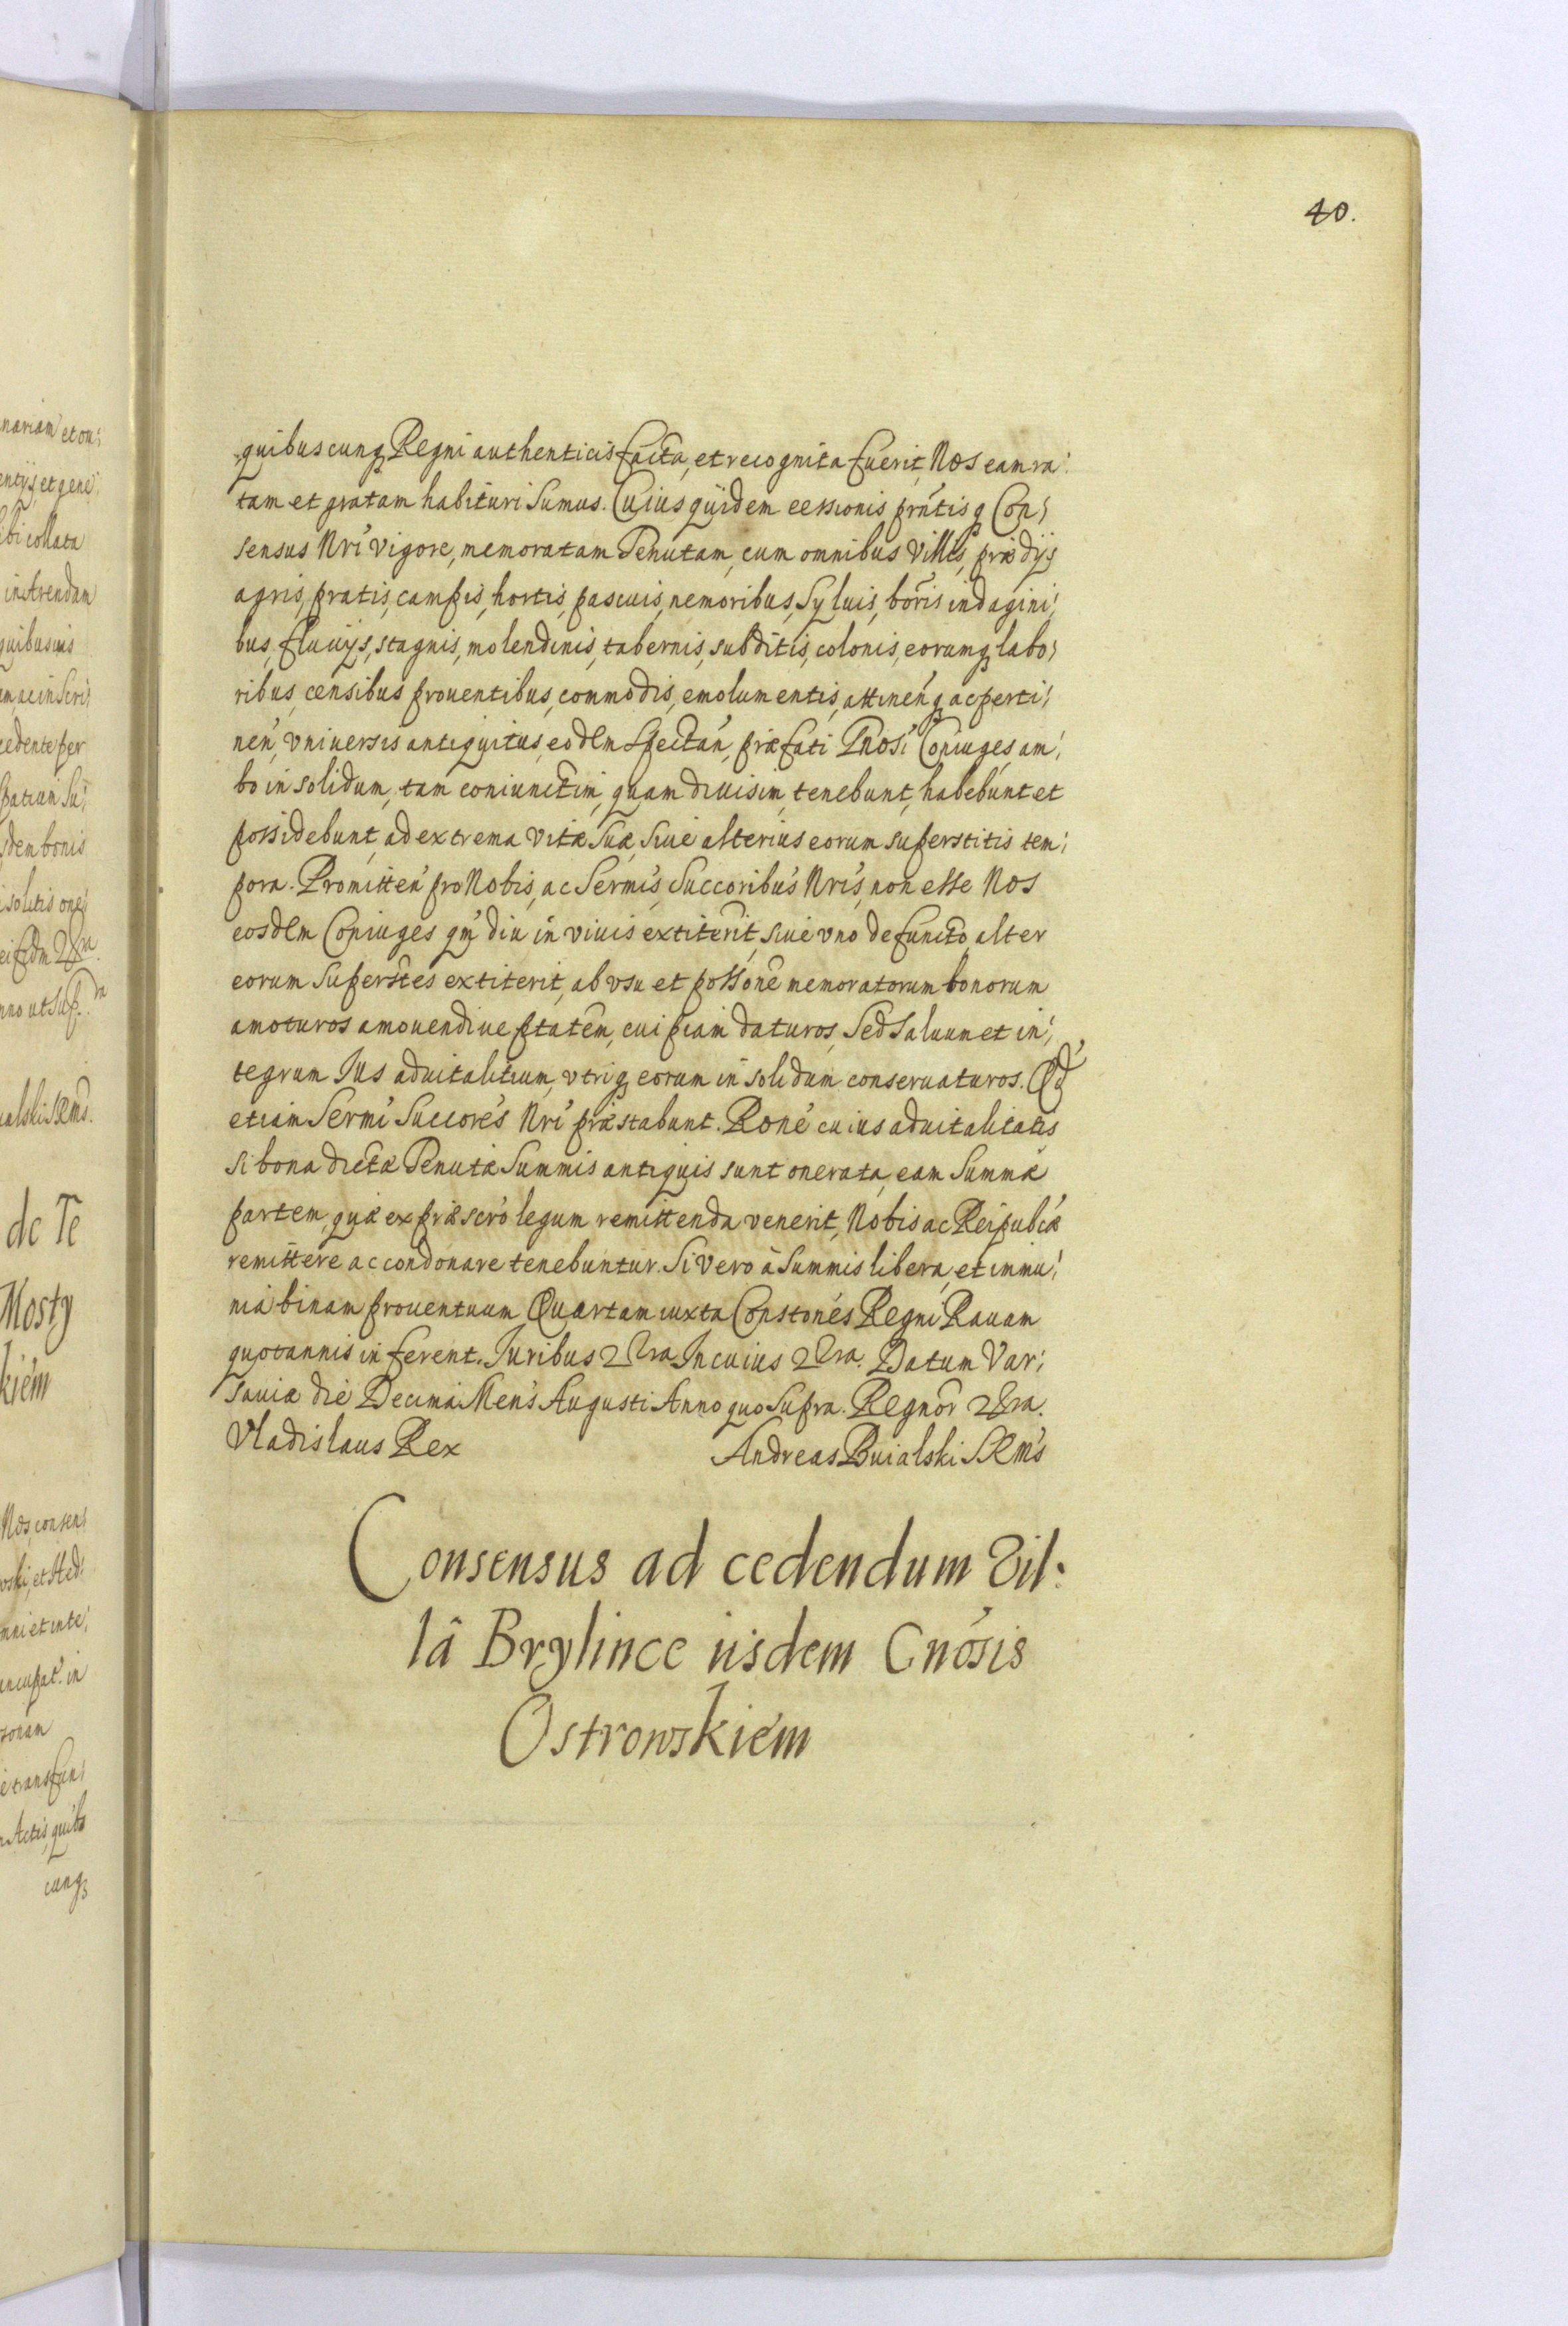 40.
quibuscunq Regni authenticis facta, et recognita fuerit, Nos eam ra:
tam et gratam habituri sumus. Cuius quidem cessionis prñtis q Con:
sensus Nri vigore, memoratam Tenutam, cum omnibus villis, prædijs
agris, pratis, campis, hortis, pascuis, nemoribus, Syluis, boris indagini:
bus, fluuijs, stagnis, molendinis, tabernis, subditis, colonis, eorumq labo:
ribus, censibus prouentibus, commodis, emolumentis, attineñ q ac perti:
neñ, vniuersis antiquitus, eodem Spectañ, præfati Gnosi Coniuges, am:
bo in solidum, tam coniunctim, quam diuisim, tenebunt, habebunt et
possidebunt, ad extrema vitæ suæ, siue alterius eorum superstitis tem:
pora. Promitteñ pro Nobis, ac Sermis, Succoribus Nris, non esse Nos
eosdem Coniuges qm diu in viuis extiterit, siue vno defuncto, alter
eorum superstes extiterit, ab vsu et possone memoratorum bonorum
amoturos amouendiue ptatem, cuipiam daturos, Sed saluum et in:
tegrum Ius aduitalitium, vtriq eorum in solidum conseruaturos. Qd
etiam Sermi Succores Nri præstabunt. Rone cuius aduitalitatis
si bona dictæ Tenutæ Summis antiquis sunt onerata, eam Summæ
partem, quæ ex præscro legum remittenda venerit, Nobis ac Reipublcæ
remittere ac condonare tenebuntur. Si vero à Summis libera, et immu:
nia binam prouentuum Quartam iuxta Constones Regni Rauam
quotannis inferent. Iuribus &ra. In cuius &ra. Datum Var:
sauiæ die Decima Mens Augusti Anno quo supra. Regnor &ra.
Vladislaus Rex Andreas Buialski SRMs
Consensus ad cedendum Vil:
lâ Brylince iisdem Gnósis
Ostrowskiem
nariam et om:
entijs, et gene:
ibi collata
in Arendam
quibusuis
cedente per
sdem bonis
solitis one:
nno ut sup.ra
ialski SRMs.
de Te
Mosty
kiem
Nos, consen:
owski, et Hed:
mni et inte:
uncupat. in
sonam
e transfun:
Actis, quibs
cunq